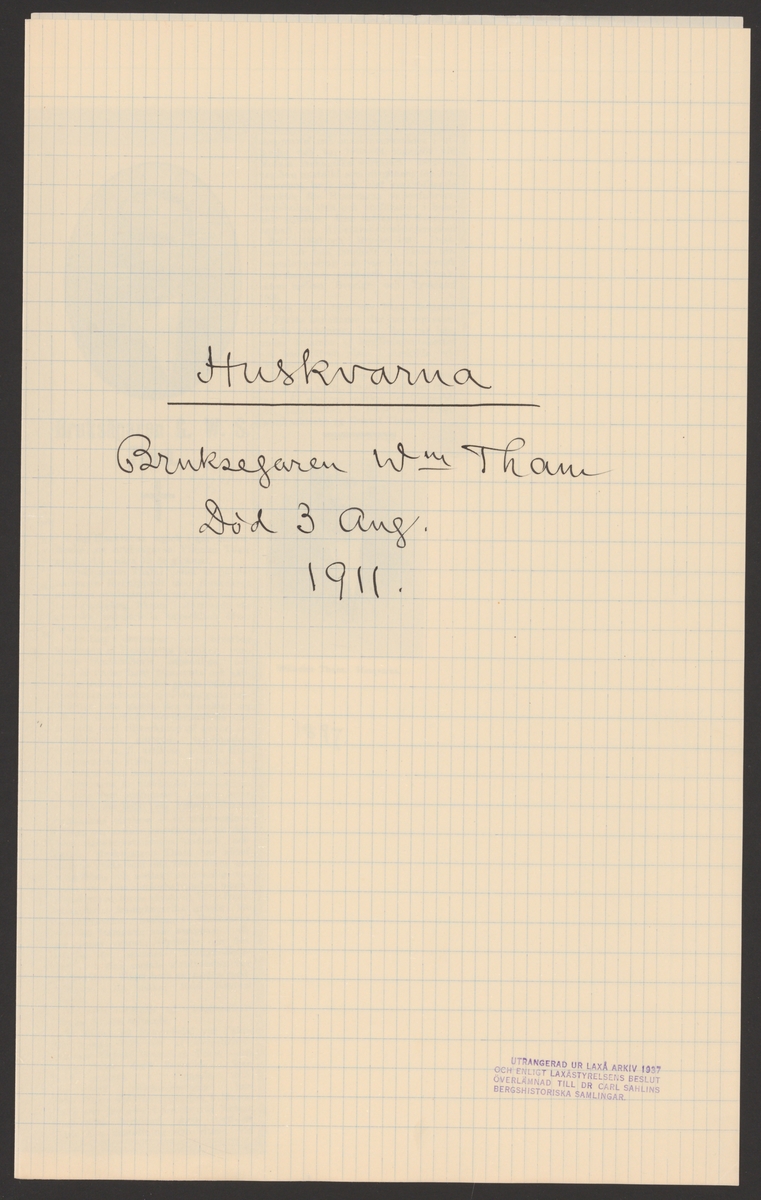 Huskvarna
Bruksegaren Wm Tham
Död 3 Aug.
1911.
UTRANGERAD UR LAXÅ ARKIV 1937
OCH ENLIGT LAXÅSTYRELSENS BESLUT
ÖVERLÄMNAD TILL DR CARL SAHLINS
BERGSHISTORISKA SAMLINGAR.